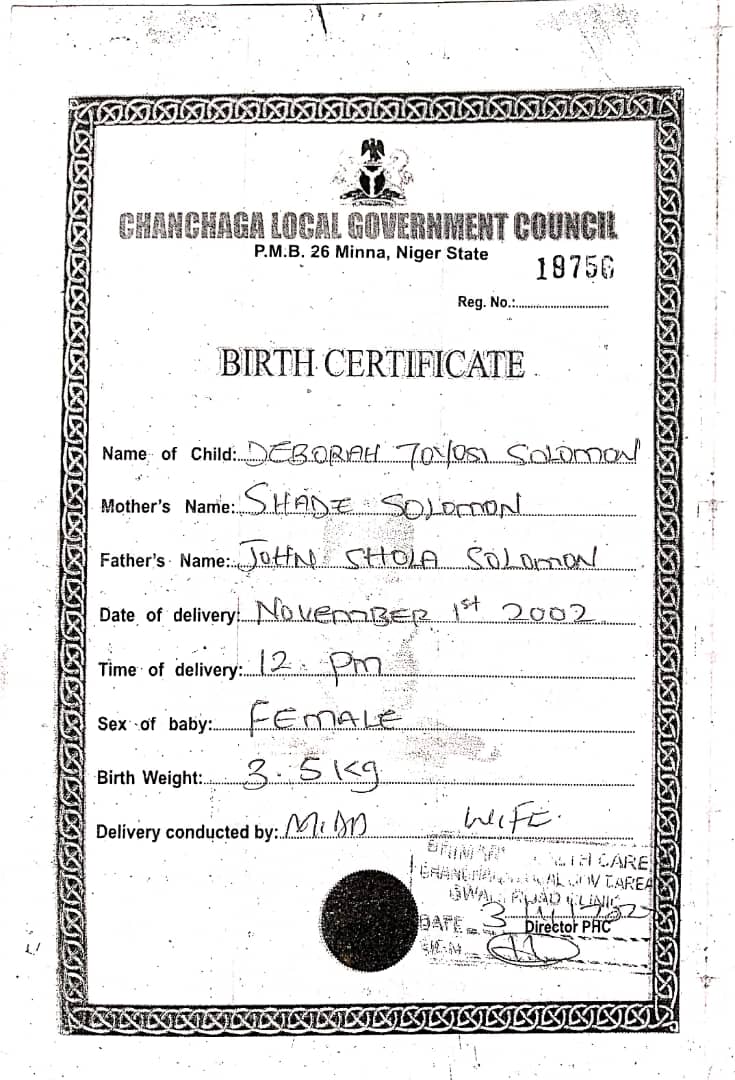 CHANCHAGA LOCAL GOVERNMENT COUNCIL
P.M.B. 26 Minna, Niger State
18756
Reg. No.:
BIRTH CERTIFICATE
Name of Child: DEBORAH TOYOSI SOLOMON
Mother's Name: SHADE SOLOMON
Father's Name: JOHN SHOLA SOLOMON
Date of delivery: NOVEMBER 1st 2002
Time of delivery: 12 pm
Sex of baby: FEMALE
Birth Weight: 3.5 kg
Delivery conducted by: MID WIFE
CARE
AREA
ROAD CLINIC
DATE 3
Director PHC
SIGN